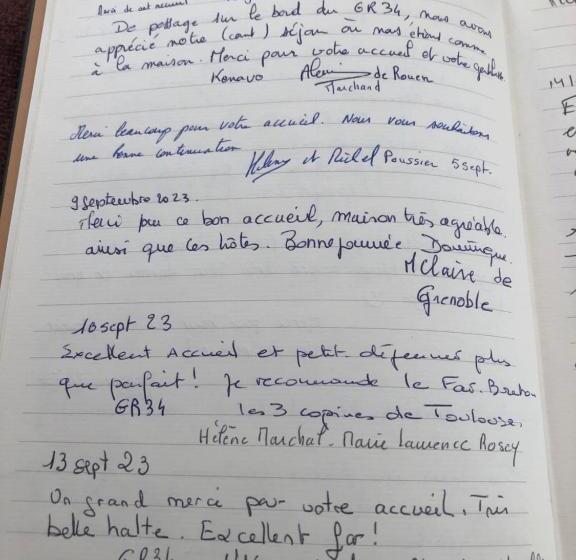 De passage sur le bord du GR34, nous avons
apprécié notre (court) séjour où nous étions comme
à la maison. Merci pour votre accueil et votre
Kenavo Alain de Rouen
Marchand
Merci beaucoup pour votre accueil. Nous vous souhaitons
une bonne continuation
et Michel Poussier 5 sept.
9 septembre 2023.
Merci pour ce bon accueil, maison très agréable
ainsi que les hôtes. Bonne journée Dominique.
MClaire de
Grenoble
10 sept 23
Excellent Accueil et petit déjeuner plus
que parfait! Je recommande le Far. Breton
GR34 les 3 copines de Toulouse.
Hélène Marchat. Marie Laurence Roscy
13 sept 23
Un grand merci pour votre accueil. Très
belle halte. Excellent far!
GR34